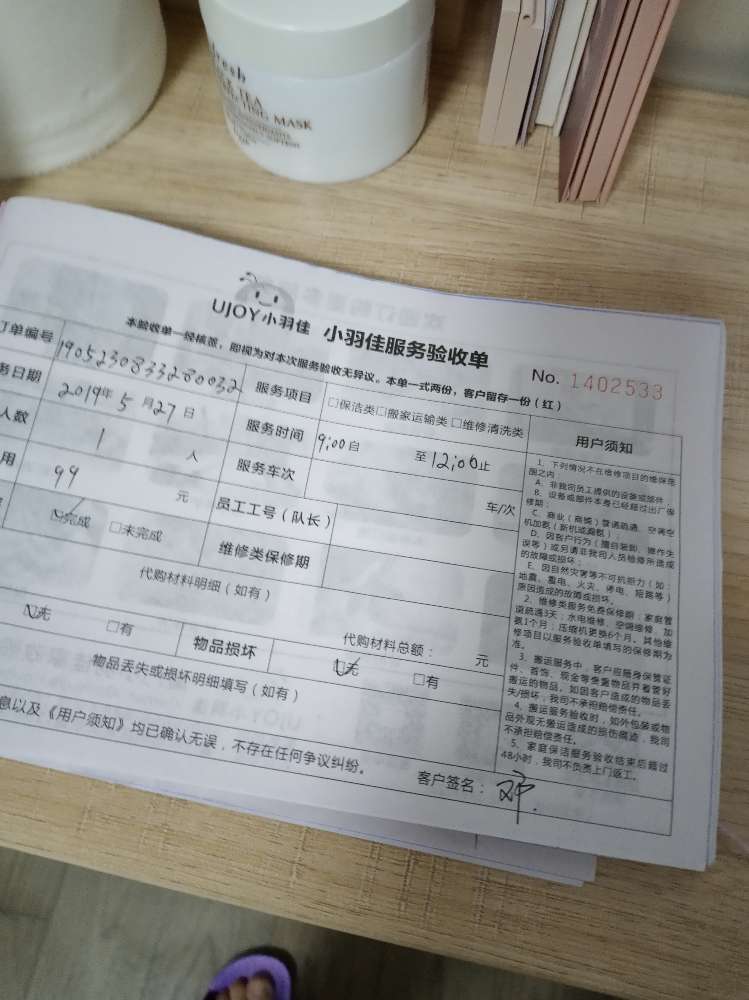 fresh
TEA
MASK
UJOY小羽佳 小羽佳服务验收单
No. 1402533
本验收单一经核签，即视为对本次服务验收无异议。本单一式两份，客户留存一份（红）
订单编号 1905230833280032 服务项目 □保洁类□搬家运输类 □维修清洗类
务日期 2019年 5 月27日 服务时间 9:00自 至12:00止
人数 1 人 服务车次 车/次
用 99 元 员工工号（队长）
☑完成 □未完成 维修类保修期
代购材料明细（如有）
代购材料总额： 元
☑无 □有 物品损坏 ☑无 □有
物品丢失或损坏明细填写（如有）
息以及《用户须知》均已确认无误，不存在任何争议纠纷。
客户签名：
用户须知
1、下列情况不在维修项目的维保范
围之内
A、非我司员工提供的设备或部件；
B、设备或部件本身已经超过出厂保
修期；
C、商业（商铺）管道疏通、空调空
机加氨（新机或漏氨）；
D、因客户行为（擅自装卸、操作生
误等）或另请非我司人员检修所造成
的故障或损坏；
E、因自然灾害等不可抗影力（如：
地震、蓄电、火灾、停电、短路等）
原因造成的故障或损坏。
2、维修类服务免费保修期：家庭管
道疏通3天；水电维修、空调维修、加
氨1个月；压缩机更换6个月。其他维
修项目以服务验收单填写的保修期为
准。
3、搬运服务中，客户应随身保管证
件、首饰、现金等贵重物品并看管好
搬运的物品。如因客户造成的物品丢
失/损坏，我司不承担赔偿责任。
4、搬运服务验收时，如外包装或物
品外观无搬运造成的损伤痕迹，我司
不承担赔偿责任。
5、家庭保洁服务验收结束后超过
48小时，我司不负责上门返工。